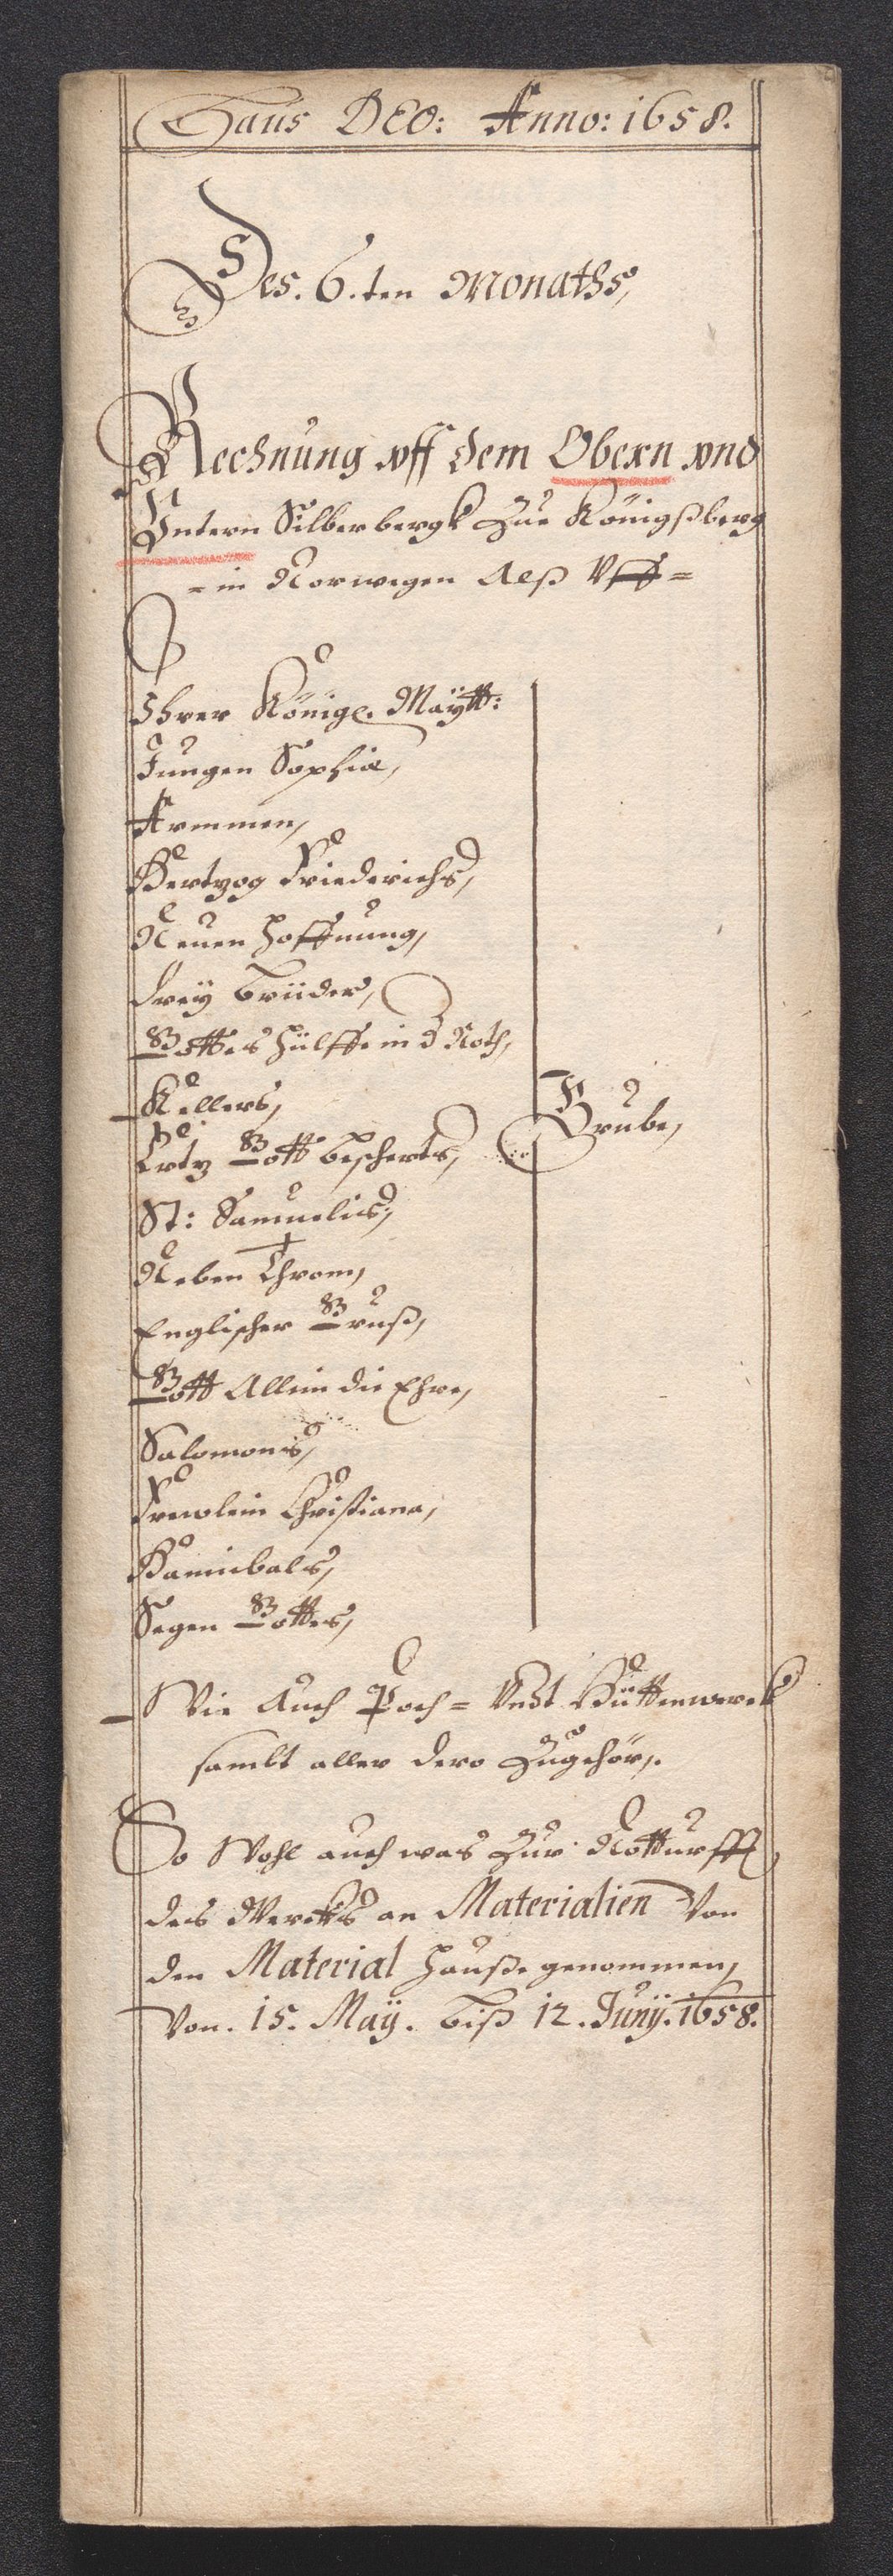 Laus DEO: Anno: 1658.
Des. 6.ten Monaths,
Rechnung vff dem Obern vnd
Vntern Silberbergk Zue Königßberg
= in Norwegen Alß Vff =
Ihrer Königl. Maÿtt:
Jungen Sophia,
Armmen,
Hertzog Friederichs,
Neuen Hoffnung,
Dreÿ Brüder,
Gottes Hülffe in d Noth,
Kellers,
Ertz Gott bescherts,
Grube,
St: Samuelis,
Neben Throm,
Englischer Gruß,
Gott Allein die Ehre,
Salomonis,
Frewlein Christiana,
Hannibals,
Segen Gottes,
Wie Auch Poch = Undt Hüttenwerck
sambt aller dero Zugehör,.
So Wohl auch was Zur Notturfft
des Wercks an Materialien Von
den Material Hauße genommen,
Von. 15. Maÿ. biß 12. Junÿ. 1658.